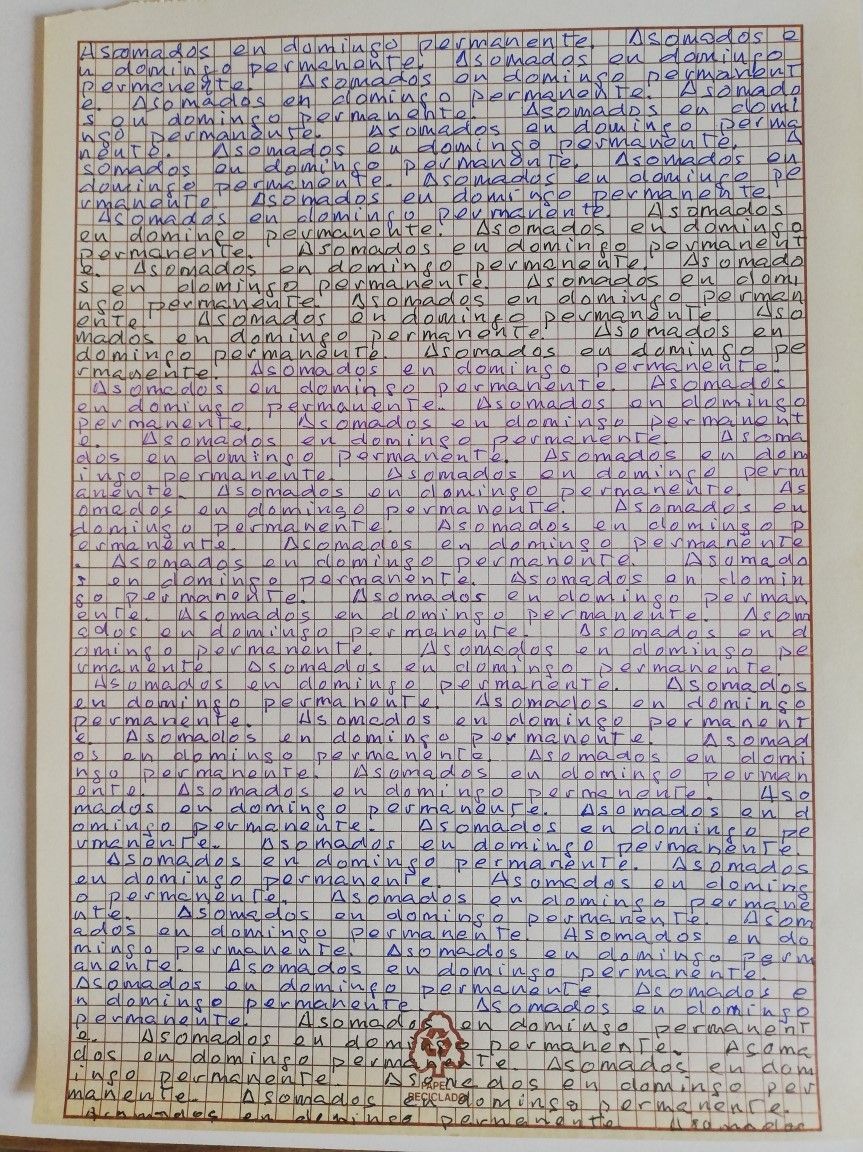 Asomados en domingo permanente. Asomados e
n domingo permanente. Asomados en domingo
permenente. Asomados en domingo permanent
e. Asomados en domingo permanente. Asomado
s en domingo permanente. Asomados en domi
ngo permanente. Asomados en domingo perma
nente. Asomados en domingo permanente. A
somados en domingo permanente. Asomados en
domingo permanente. Asomados en domingo pe
rmanente. Asomados en domingo permanente.
Asomados en domingo permanente. Asomados
en domingo permanente. Asomados en domingo
permanente. Asomados en domingo permanent
e. Asomados en domingo permanente. Asomado
s en domingo permanente. Asomados en domi
ngo permanente. Asomados en domingo perman
ente. Asomados en domingo permanente. Aso
mados en domingo permanente. Asomados en
domingo permanente. Asomados en domingo pe
rmanente. Asomados en domingo permanente.
Asomados en domingo permanente. Asomados
en domingo permanente. Asomados en domingo
permanente. Asomados en domingo permanent
e. Asomados en domingo permanente. Asoma
dos en domingo permanente. Asomados en dom
ingo permanente. Asomados en domingo perm
anente. Asomados en domingo permanente. As
omados en domingo permanente. Asomados en
domingo permanente. Asomados en domingo p
ermanente. Asomados en domingo permanente
. Asomados en domingo permanente. Asomado
s en domingo permanente. Asomados en domin
go permanente. Asomados en domingo perman
ente. Asomados en domingo permanente. Asom
ados en domingo permanente. Asomados en d
omingo permanente. Asomados en domingo pe
rmanente. Asomados en domingo permanente.
Asomados en domingo permanente. Asomados
en domingo permanente. Asomados en domingo
permanente. Asomados en domingo permanent
e. Asomados en domingo permanente. Asomad
os en domingo permanente. Asomados en domi
ngo permanente. Asomados en domingo perman
ente. Asomados en domingo permanente. Aso
mados en domingo permanente. Asomados en d
omingo permanente. Asomados en domingo pe
rmanente. Asomados en domingo permanente.
Asomados en domingo permanente. Asomados
en domingo permanente. Asomados en doming
o permanente. Asomados en domingo permane
nte. Asomados en domingo permanente. Asom
ados en domingo permanente. Asomados en do
mingo permanente. Asomados en domingo perm
anente. Asomados en domingo permanente.
Asomados en domingo permanente Asomados e
n domingo permanente. Asomados en domingo
permanente. Asomados en domingo permanent
e. Asomados en domingo permanente. Asoma
dos en domingo permanente. Asomados en dom
ingo permanente. Asomados en domingo per
manente. Asomados en domingo permanente.
Asomados en domingo permanente Asomados
PAPEL
RECICLADO